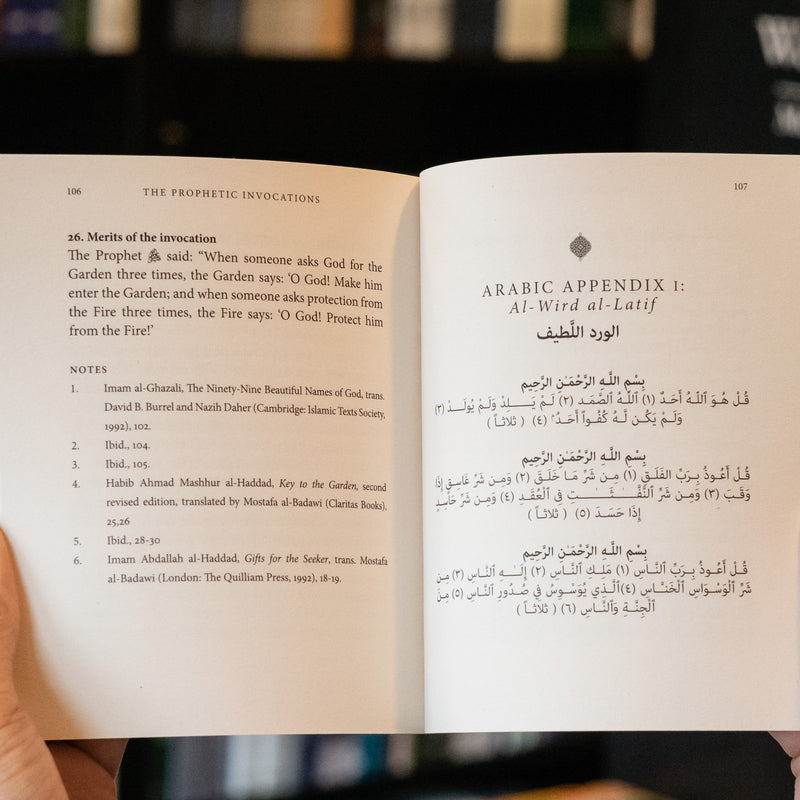 106
THE PROPHETIC INVOCATIONS
26. Merits of the invocation
The Prophet ﷺ said: “When someone asks God for the
Garden three times, the Garden says: ‘O God! Make him
enter the Garden; and when someone asks protection from
the Fire three times, the Fire says: ‘O God! Protect him
from the Fire!’
NOTES
1. Imam al-Ghazali, The Ninety-Nine Beautiful Names of God, trans.
David B. Burrel and Nazih Daher (Cambridge: Islamic Texts Society,
1992), 102.
2. Ibid., 104.
3. Ibid., 105.
4. Habib Ahmad Mashhur al-Haddad, Key to the Garden, second
revised edition, translated by Mostafa al-Badawi (Claritas Books),
25,26
5. Ibid., 28-30
6. Imam Abdallah al-Haddad, Gifts for the Seeker, trans. Mostafa
al-Badawi (London: The Quilliam Press, 1992), 18-19.
107
ARABIC APPENDIX I:
Al-Wird al-Latif
الورد اللَّطيف
بِسْمِ اللَّـهِ الرَّحْمَـٰنِ الرَّحِيمِ
قُلْ هُوَ ٱللَّهُ أَحَدٌ (١) ٱللَّهُ ٱلصَّمَدُ (٢) لَمْ يَـــلِدْ وَلَمْ يُولَـدْ (٣)
وَلَمْ يَكُـن لَّهُ كُفُوًا أَحَدٌ (٤) ( ثلاثاً )
بِسْمِ اللَّـهِ الرَّحْمَـٰنِ الرَّحِيمِ
قُلْ أَعُوذُ بِـرَبِّ الفَلَـقِ (١) مِـن شَرِّ مَـا خَلَـقَ (٢) وَمِـن شَرِّ غَاسِـقٍ إِذَا
وَقَـبَ (٣) وَمِـن شَرِّ ٱلنَّفَّـٰـثَـٰـتِ فِى ٱلْعُقَـدِ (٤) وَمِـن شَرِّ حَاسِـدٍ
إِذَا حَسَـدَ (٥) ( ثلاثاً )
بِسْمِ اللَّـهِ الرَّحْمَـٰنِ الرَّحِيمِ
قُـلْ أَعُوذُ بِـرَبِّ ٱلنَّـاسِ (١) مَلِـكِ ٱلنَّـاسِ (٢) إِلَـٰـهِ ٱلنَّـاسِ (٣) مِـن
شَرِّ ٱلْوَسْـوَاسِ ٱلْخَنَّـاسِ (٤) ٱلَّـذِي يُوَسْـوِسُ فِي صُـدُورِ ٱلنَّـاسِ (٥) مِـنَ
ٱلْجِنَّـةِ وَٱلنَّـاسِ (٦) ( ثلاثـاً )